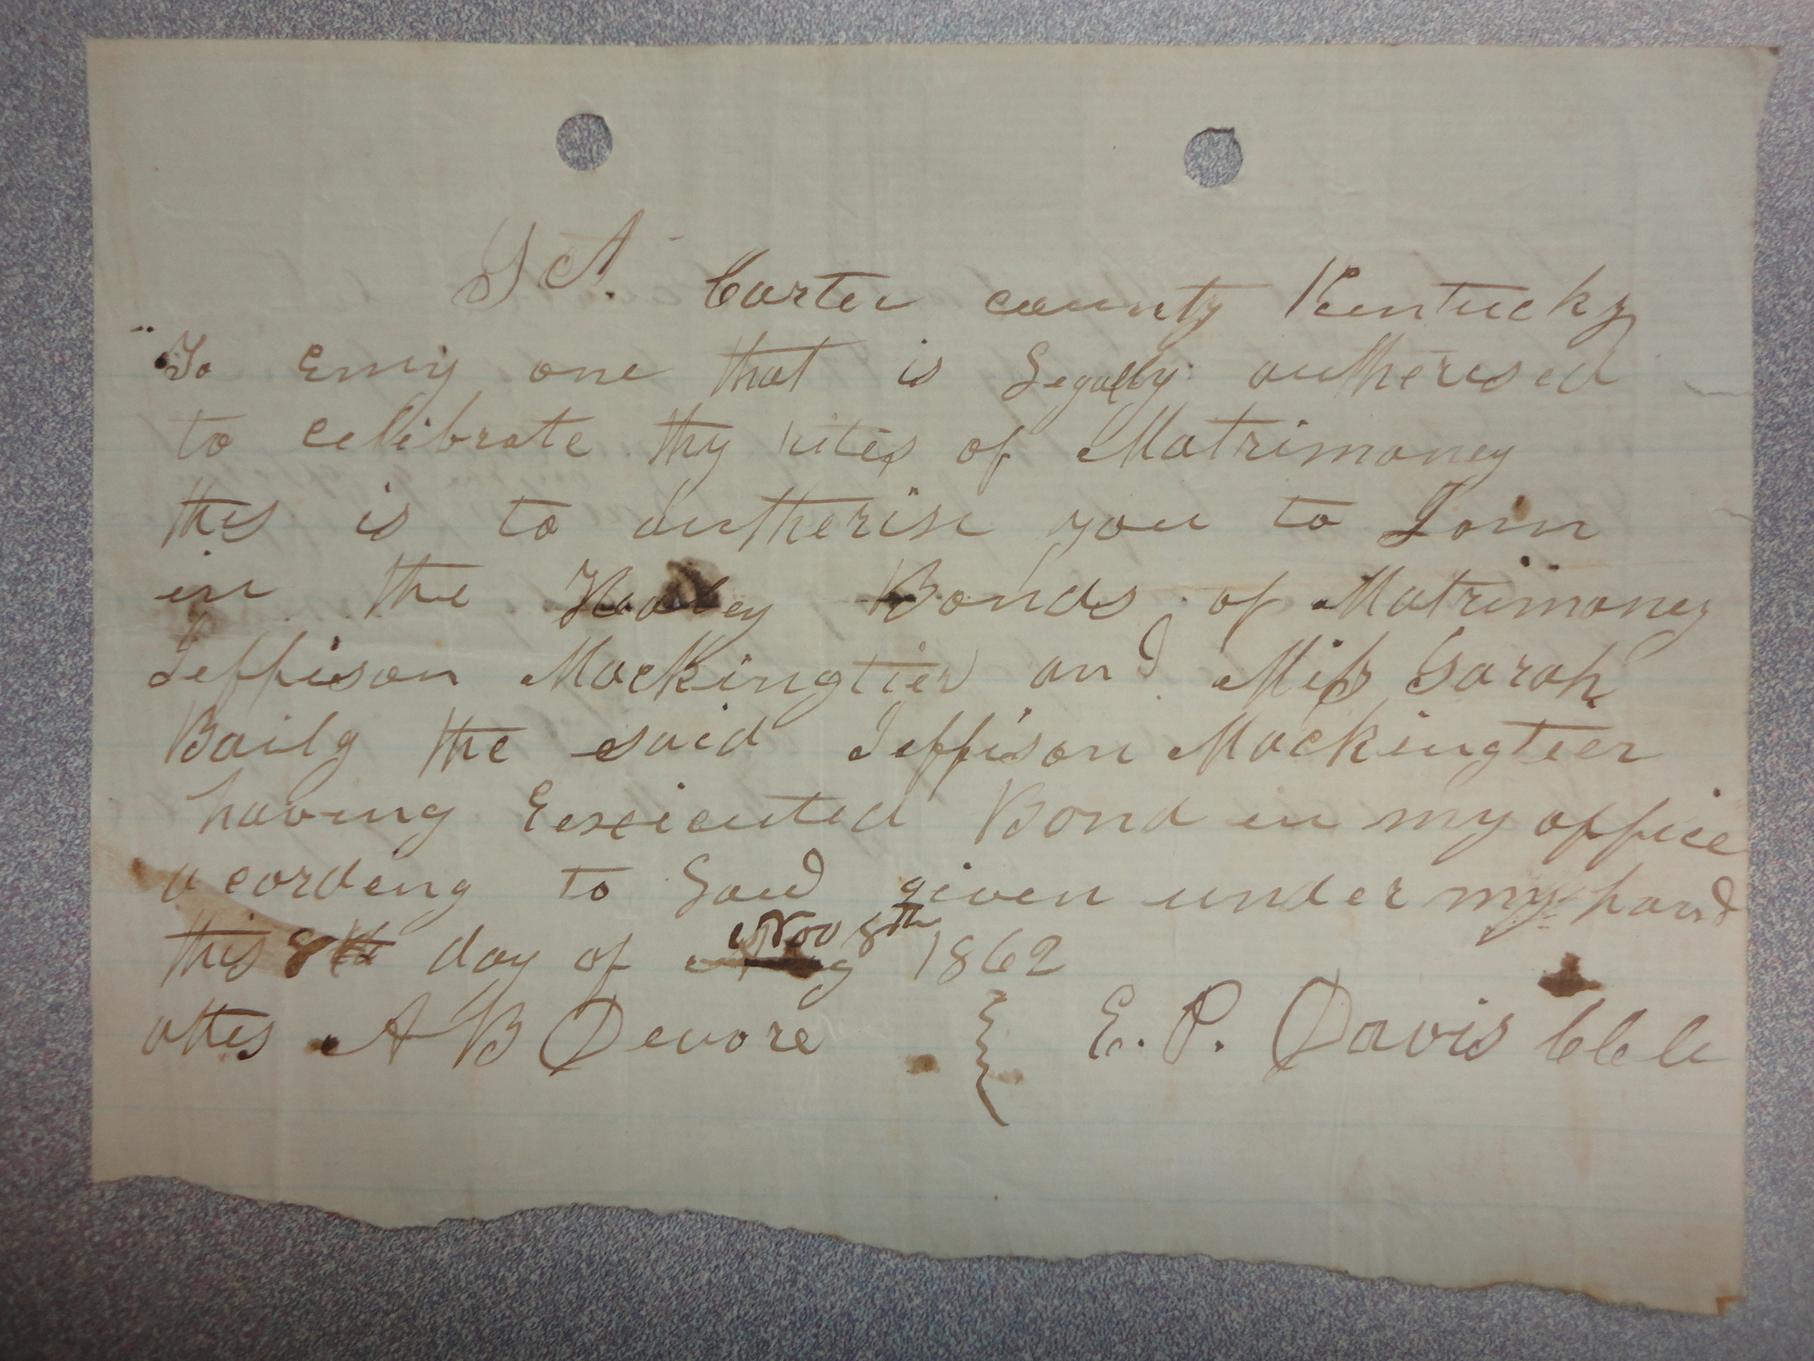 SA. Carter county Kentucky
To Enny one that is Legally autherised
to celibrate thy rites of Matrimoney
this is to autherise you to Join
in the Holey Bonds of Matrimoney
Jeffison Mackingtier and Miss Sarah
Baily the said Jeffison Mackingteer
having Exsicuted Bond in my office
acordeng to Law given under my hand
this 8th day of Nov 8th 1862
attes A B Devore } E. P. Davis CCC